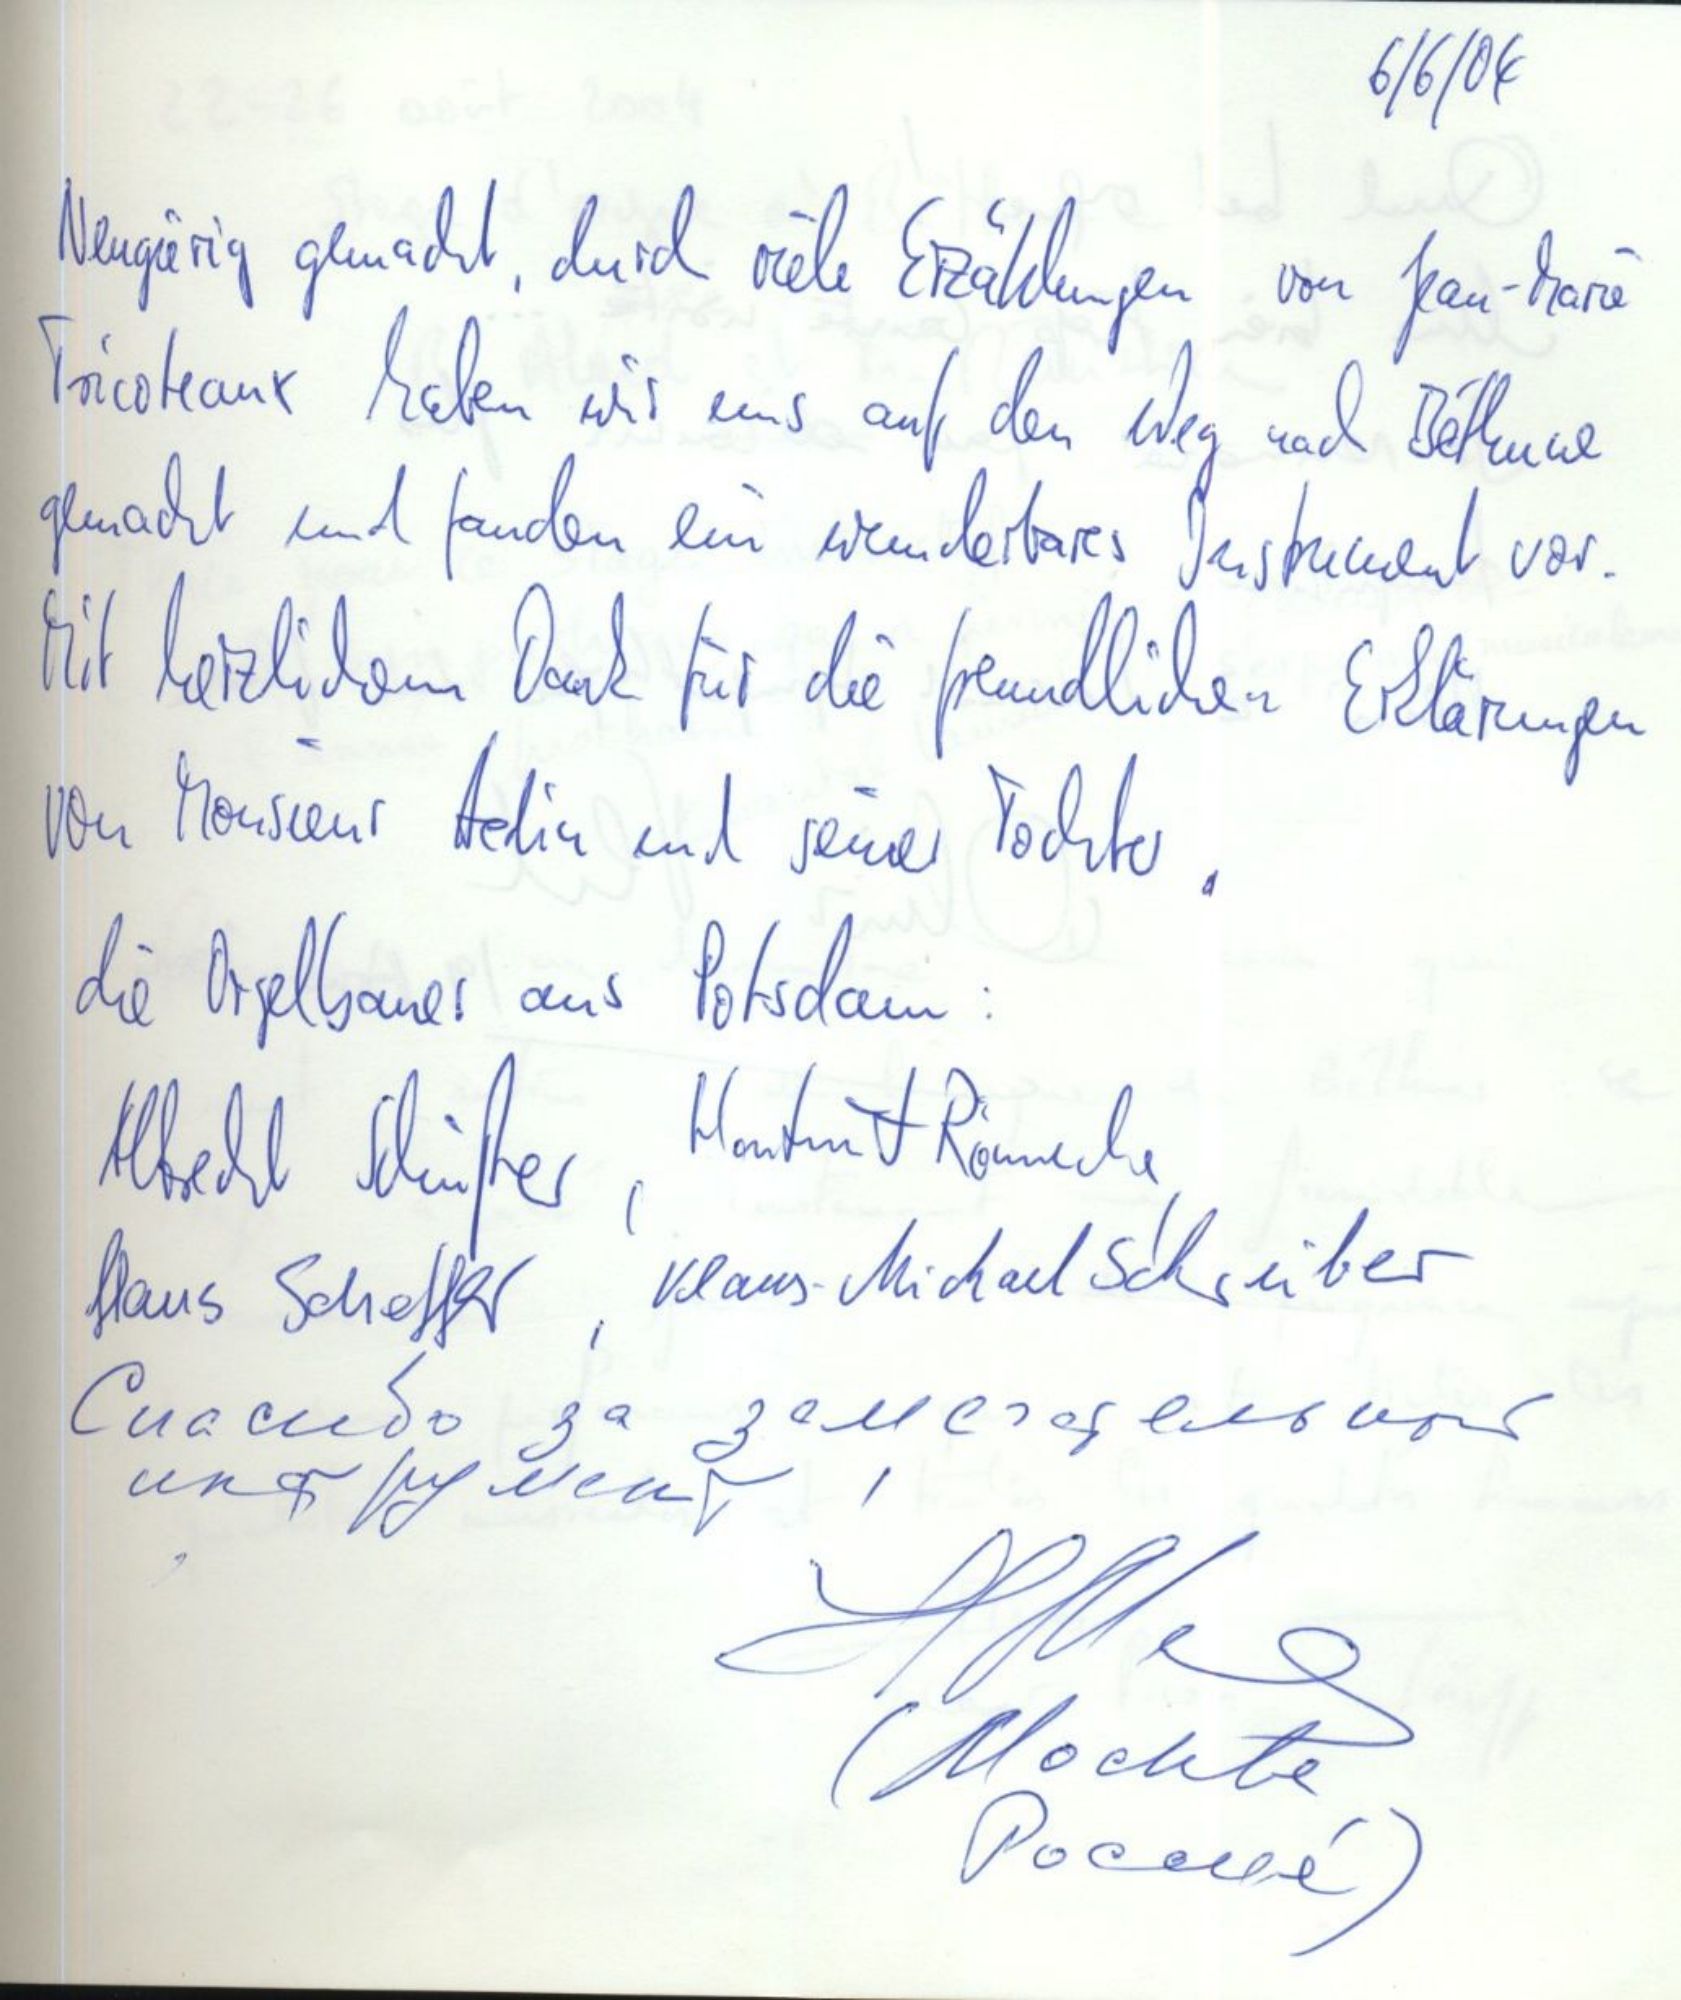 6/6/04
Neugierig gemacht, durch viele Erzählungen von Jean-Marie
Tricoteaux haben wir uns auf den Weg nach Béthune
gemacht und fanden ein wunderbares Instrument vor.
Mit herzlichem Dank für die freundlichen Erklärungen
von Monsieur Hedin und seiner Tochter.
die Orgelbauer aus Potsdam:
Albrecht , Hartmut
Klaus Scheffer , Klaus-Michael Schreiber
Спасибо за замечательный
инструмент!
(Москва
Россия)